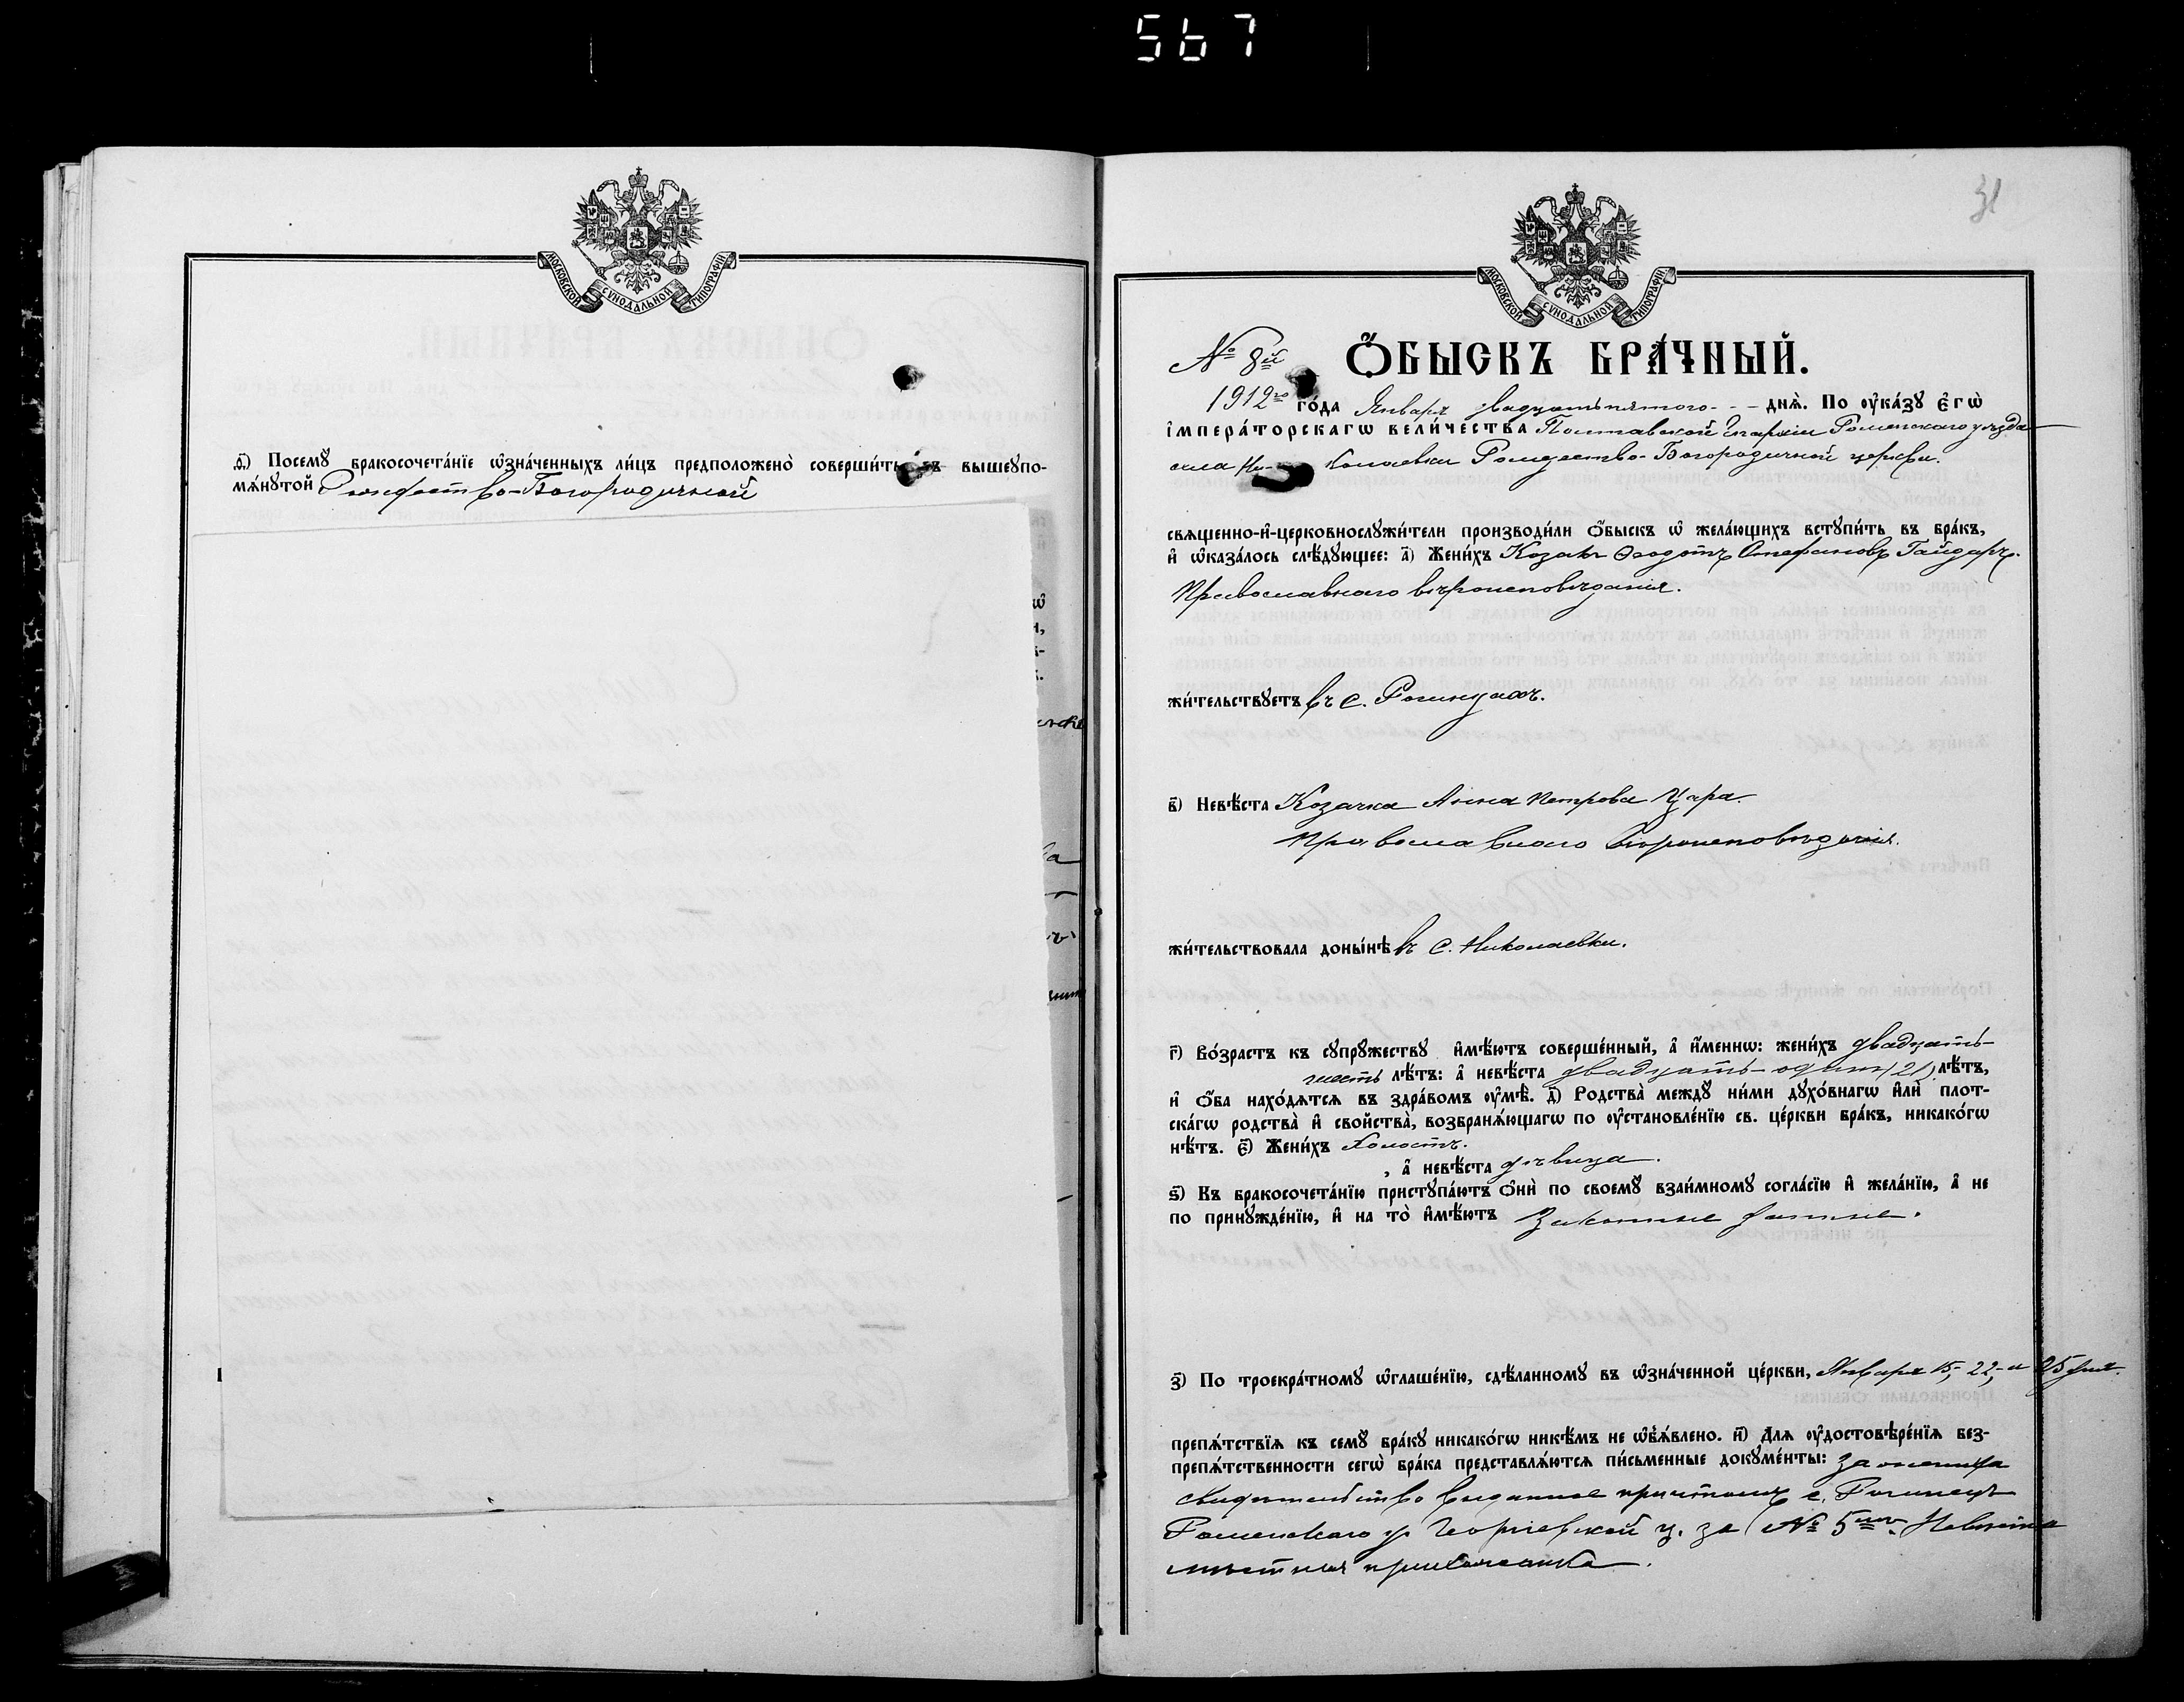 567
МОСКОВСКОЙ СѴНОДАЛЬНОЙ ТИПОГРАФІИ
ѳ҃) Посемꙋ̀ бракосочета́нїе ѡ҆зна́ченныхъ ли́цъ предположено̀ соверши́ть въ вышеꙋпо-
мѧ́нꙋтой Рождество-Богородичной
31
МОСКОВСКОЙ СѴНОДАЛЬНОЙ ТИПОГРАФІИ
№ 8й Ѻ҆БЫСКЪ БРА́ЧНЫЙ.
1912го го́да Января двадцатьпятого - - дня̀. По ᲂу҆ка́зꙋ є҆гѡ̀
і҆мпера́торскагѡ вели́чества Полтавской Епархіи Роменскаго уѣзда
села Ни- колаевки Рождество-Богородичной церкви.
свѧщенно-и҆-церковнослꙋжи́тели производи́ли ѻ҆́быскъ ѡ҆ жела́ющихъ встꙋпи́ть въ бра́къ,
и҆ ѡ҆каза́лось слѣ́дꙋющее: а҃) Жени́хъ Козакъ Ѳеодотъ Стефановъ Гайдаръ.
Православнаго вѣроисповѣданія.
жи́тельствꙋетъ въ с. Рогинцахъ.
в҃) Невѣ́ста Козачка Анна Петрова Цара.
Православнаго вѣроисповѣданія.
жи́тельствовала доны́нѣ въ с. Николаевки.
г҃) Во́зрастъ къ сꙋпрꙋжествꙋ и҆мѣ́ютъ соверше́нный, а҆ и҆́меннѡ: жени́хъ двадцать-
шесть лѣ́тъ: а҆ невѣ́ста двадцать-одинъ (21) лѣ́тъ,
и҆ ѻ҆́ба нахо́дѧтсѧ въ здра́вомъ ᲂу҆мѣ̀. д҃) Родства̀ междꙋ̀ ни́ми дꙋхо́внагѡ и҆лѝ плот-
ска́гѡ родства̀ и҆ свойства̀, возбранѧ́ющагѡ по ᲂу҆становле́нїю св. це́ркви бра́къ, никако́гѡ
нѣ́тъ. є҃) Жени́хъ холостъ.
, а҆ невѣ́ста дѣвица.
ѕ҃) Къ бракосочета́нїю пристꙋпа́ютъ ѻ҆нѝ по своемꙋ̀ взаи́мномꙋ согла́сїю и҆ жела́нїю, а҆ не
по принꙋжде́нїю, и҆ на то̀ и҆мѣ́ютъ Законные
з҃) По троекра́тномꙋ ѡ҆глаше́нїю, сдѣ́ланномꙋ въ ѡ҆зна́ченной це́ркви, Января 15, 22, и 25 дня.
препѧ́тствїѧ къ семꙋ̀ бра́кꙋ никако́гѡ никѣ́мъ не ѡ҆б̾ѧ́влено. и҃) Длѧ ᲂу҆достовѣре́нїѧ без-
препѧ́тственности сегѡ̀ бра́ка представлѧ́ютсѧ пи́сьменные докꙋме́нты: За жениха
свидѣтельство выданное причтомъ с. Рогинецъ
Роменскаго у. Георгіевской ц. за № 5 Невѣста
мѣстная прихожанка.